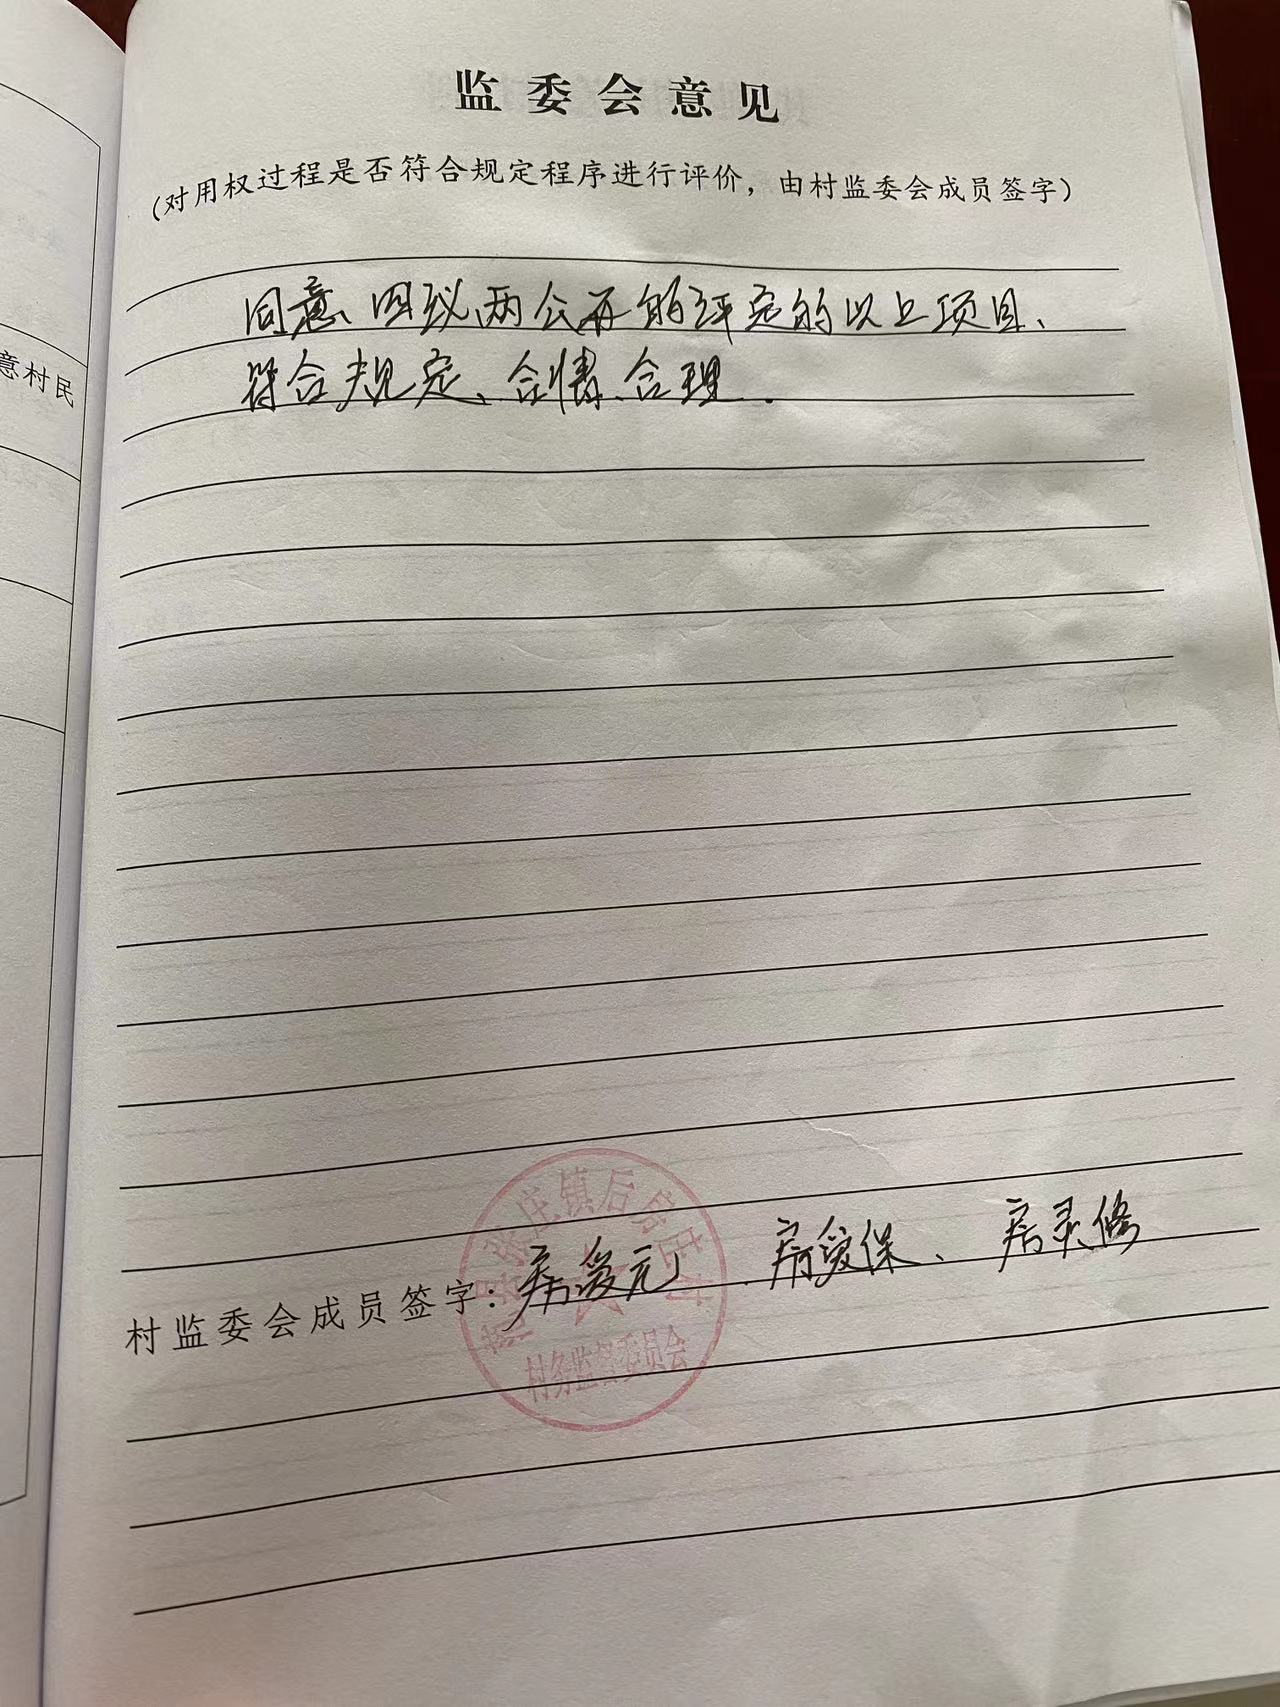 监委会意见
(对用权过程是否符合规定程序进行评价，由村监委会成员签字)
同意、四议两公开的评定的以上项目、
符合规定、合情、合理.
意村民
张庄镇后房庄村
村监委会成员签字: 房爱元、房爱保、房灵修
村务监督委员会